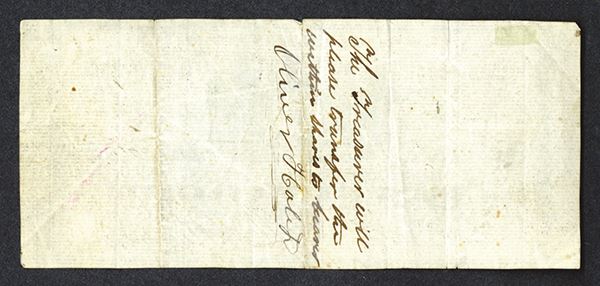 The Treasurer will
please transfer the
within shares to bearer
Oliver